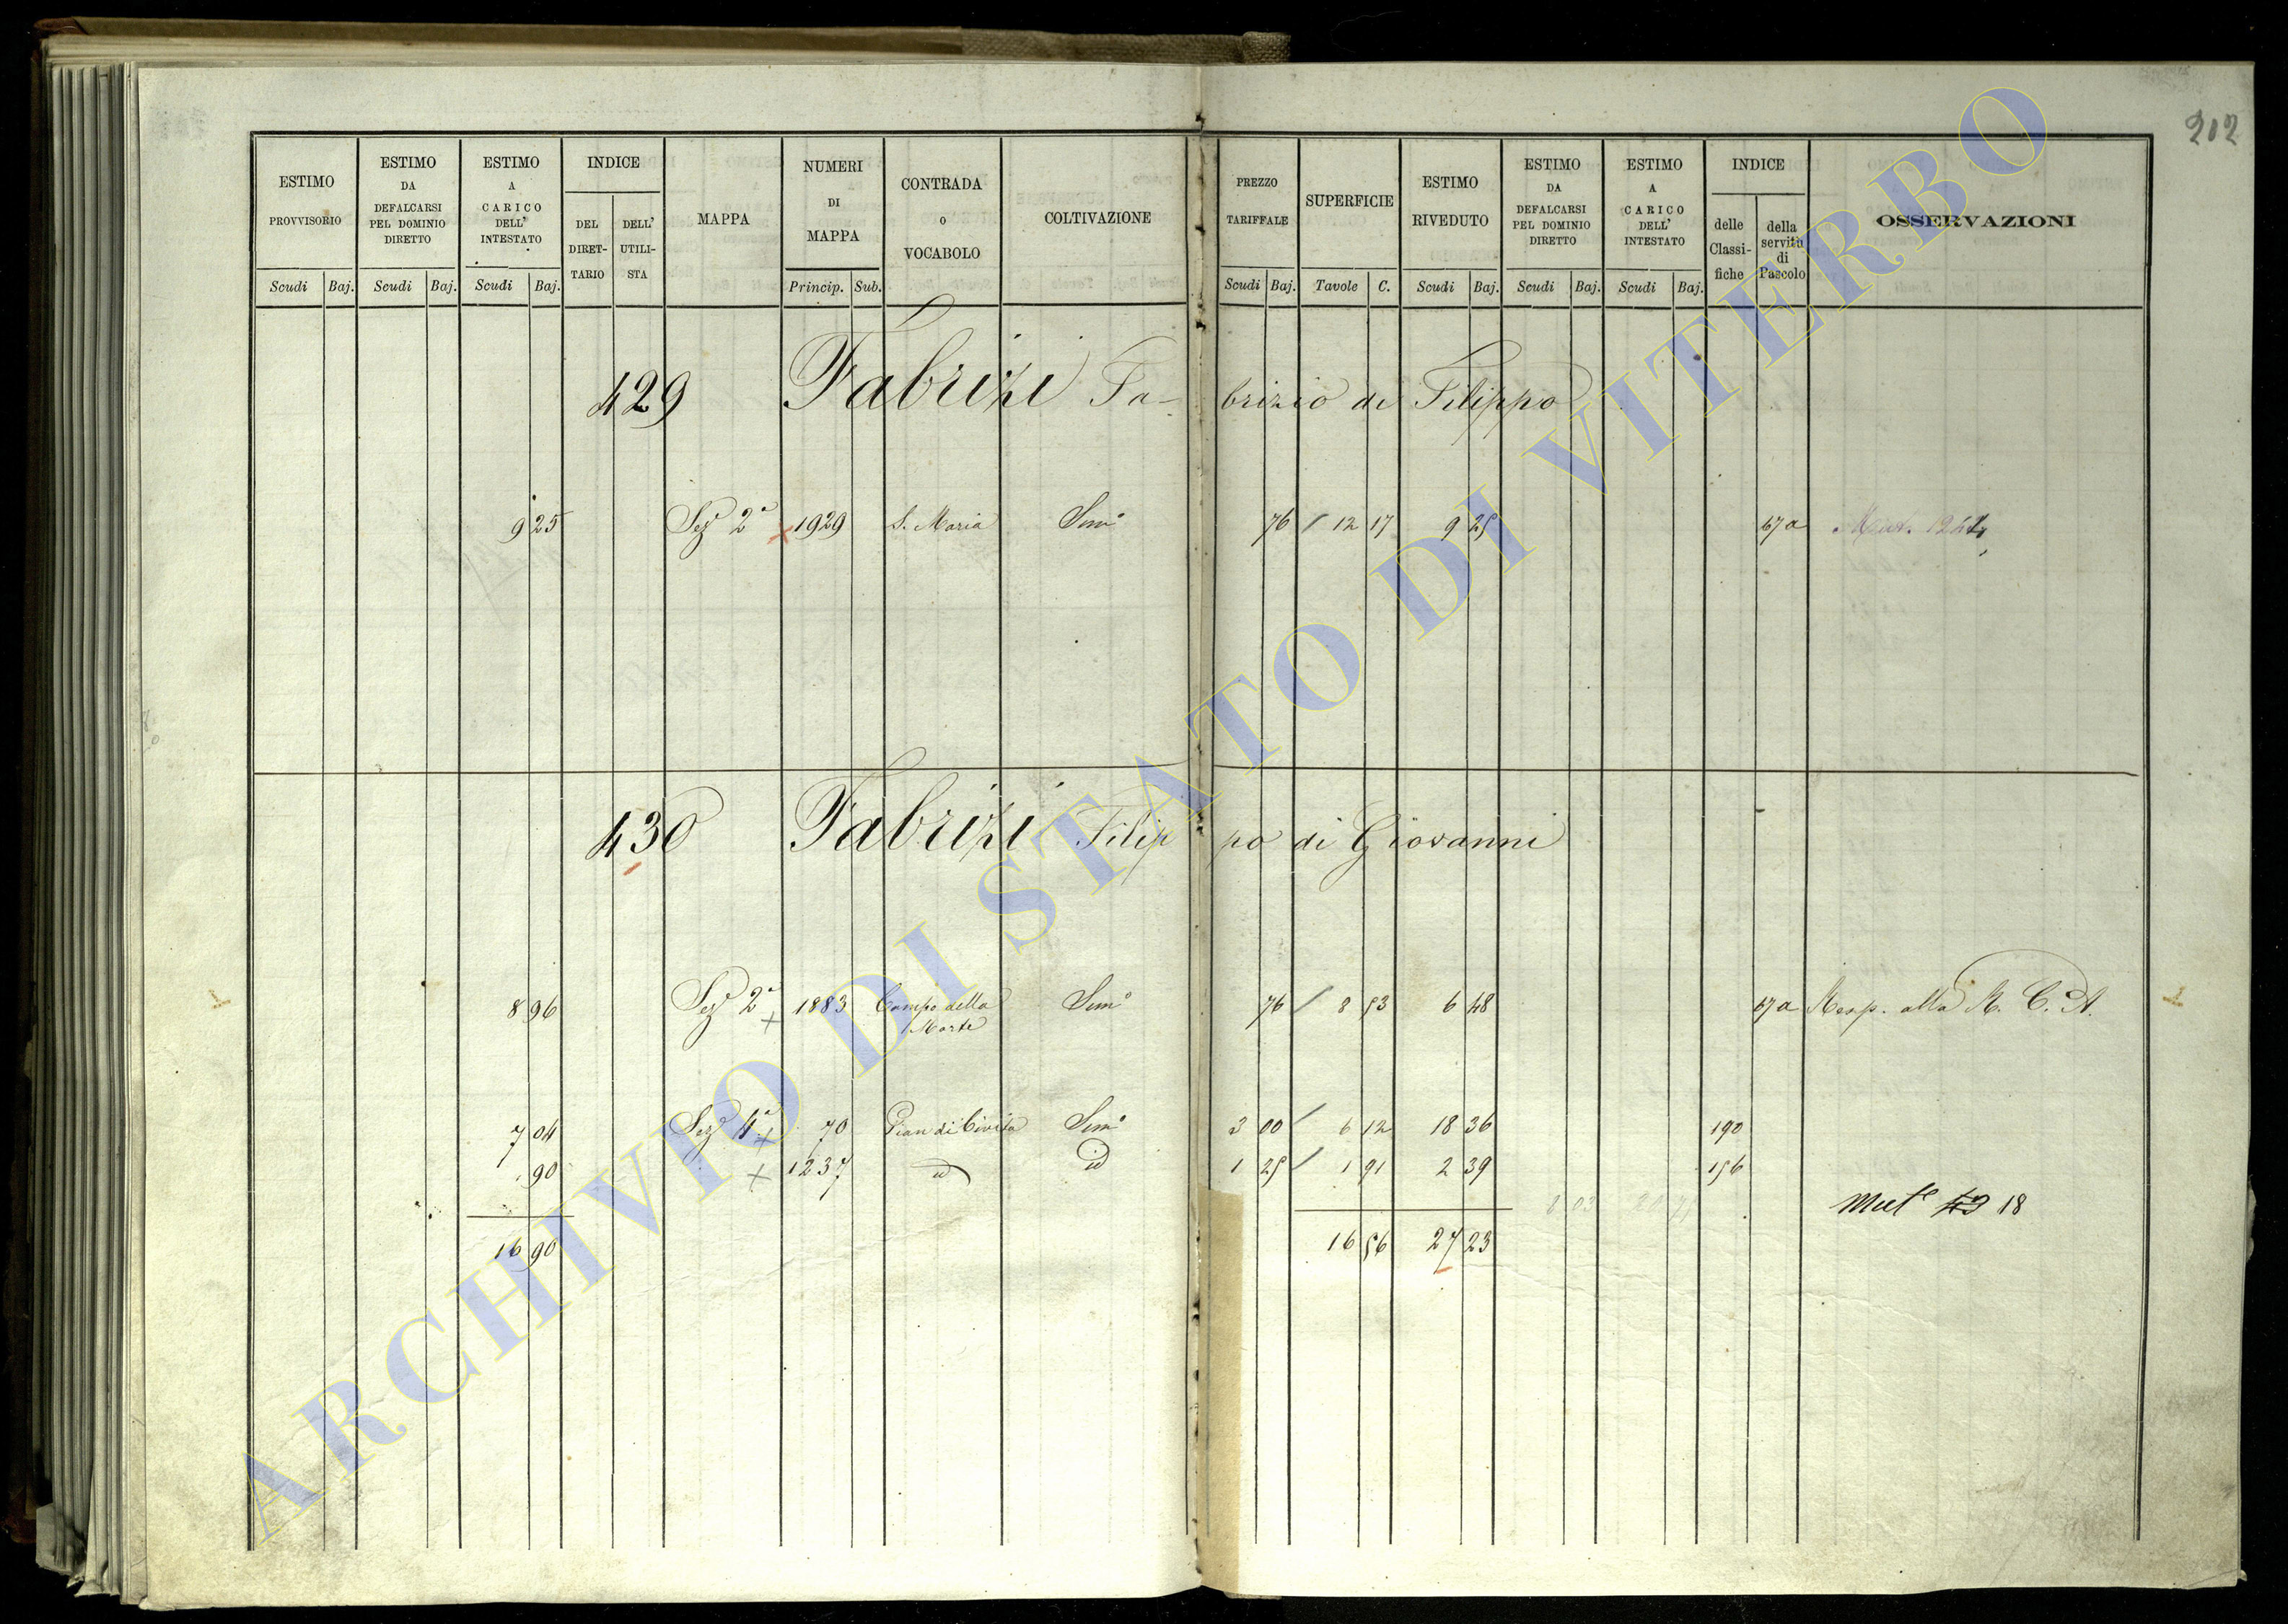 212
ESTIMO PROVVISORIO Scudi Baj.
ESTIMO DA DEFALCARSI PEL DOMINIO DIRETTO Scudi Baj.
ESTIMO A CARICO DELL' INTESTATO Scudi Baj.
INDICE DEL DIRET-TARIO DELL' UTILI-STA
MAPPA
NUMERI DI MAPPA Princip. Sub.
CONTRADA O VOCABOLO
COLTIVAZIONE
PREZZO TARIFFALE Scudi Baj.
SUPERFICIE Tavole C.
ESTIMO RIVEDUTO Scudi Baj.
ESTIMO DA DEFALCARSI PEL DOMINIO DIRETTO Scudi Baj.
ESTIMO A CARICO DELL' INTESTATO Scudi Baj.
INDICE delle Classi-fiche della servitù di Pascolo
OSSERVAZIONI
429 Fabrizi Fa-brizio di Filippo
9 25 Sez 2a 1929 S. Maria Sem° 76 / 12 17 9 25 67a
430 Fabrizi Filippo di Giovanni
8 96 Sez 2a 1883 Campo della Morte Sem° 76 / 8 53 6 48 67a Resp. alla R. C. A.
7 04 Sez 4a 70 Pian di Civita Sem° 3 00 / 6 12 18 36 190
90 1237 id id 1 25 / 1 91 2 39 156
8 03 20 75
Mut° 43 18
16 90 16 56 27 23
ARCHIVIO DI STATO DI VITERBO